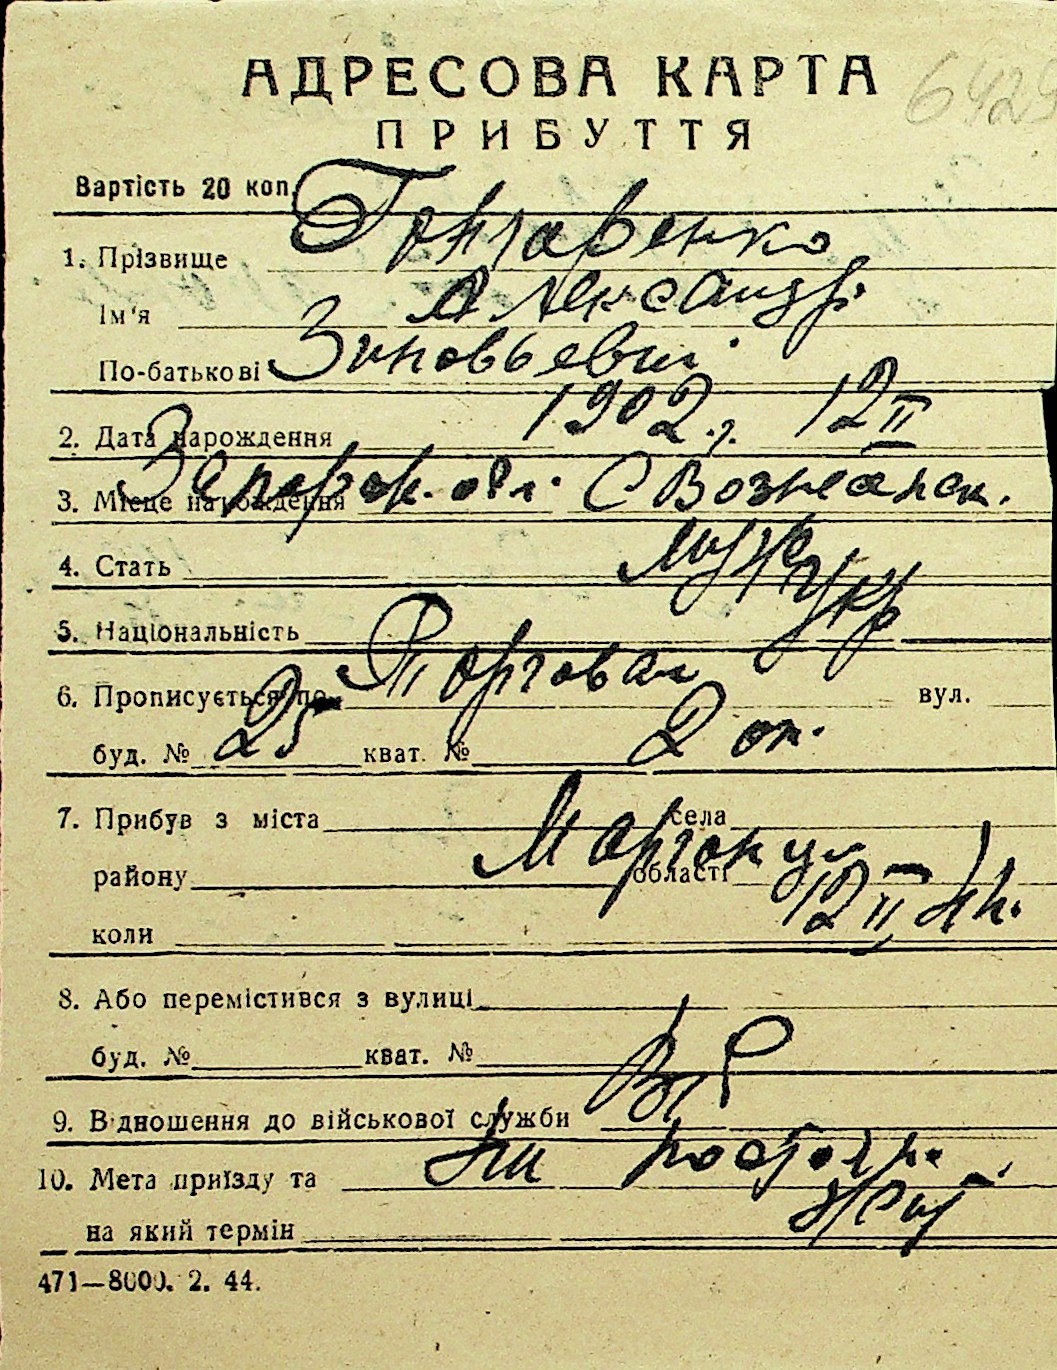 АДРЕСОВА КАРТА
6429
ПРИБУТТЯ
Вартість 20 коп.
1. Прізвище Гончаренко
Ім'я Александр
По-батькові Зиновьевич
2. Дата народження 1902 г. 12 II
3. Місце народження Запорож. обл. С Вознесенск.
4. Стать муж
5. Національність укр
6. Прописується по Торговая вул.
буд. № 25 кват. № 2 оп.
7. Прибув з міста села
району Марганцу області
коли 12 II
8. Або перемістився з вулиці
буд. № кват. №
9. Відношення до військової служби В/б
10. Мета приїзду та На постоян.
на який термін жит
471—8000. 2. 44.